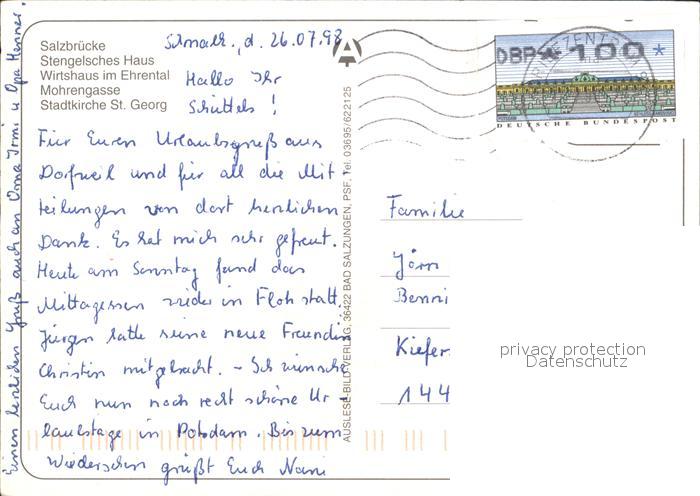 Salzbrücke
Stengelsches Haus
Wirtshaus im Ehrental
Mohrengasse
Stadtkirche St. Georg
Schmalk., d. 26.07.98
Hallo Ihr
Schüttels!
Für Euren Urlaubsgruß aus
Dorfweil und für all die Mit
teilungen von dort herzlichen
Dank. Es hat mich sehr gefreut.
Heute am Sonntag fand das
Mittagessen wieder in Floh statt.
Jürgen hatte seine neue Freundin
Christin mitgebracht. – Ich wünsche
Euch nun noch recht schöne Ur-
laubstage in Potsdam. Bis zum
Wiedersehen grüßt Euch Nani
Einen herzlichen Gruß auch an Oma Irmi u Opa Henner.
AUSLESE-BILD-VERLAG, 36422 BAD SALZUNGEN, PSF, Tel. 03695/622125
DBP * 100 *
DEUTSCHE BUNDESPOST
Familie
Jörn
Benni
Kiefer
144
privacy protection
Datenschutz